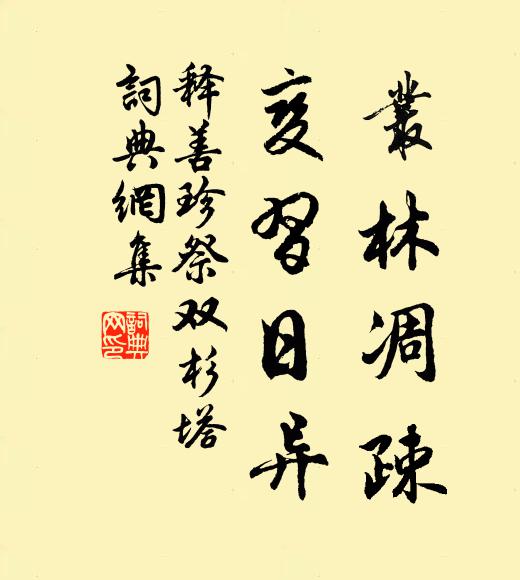 叢林凋疎
变習日异
释善珍祭双杉塔
詞典網集
詞典网印